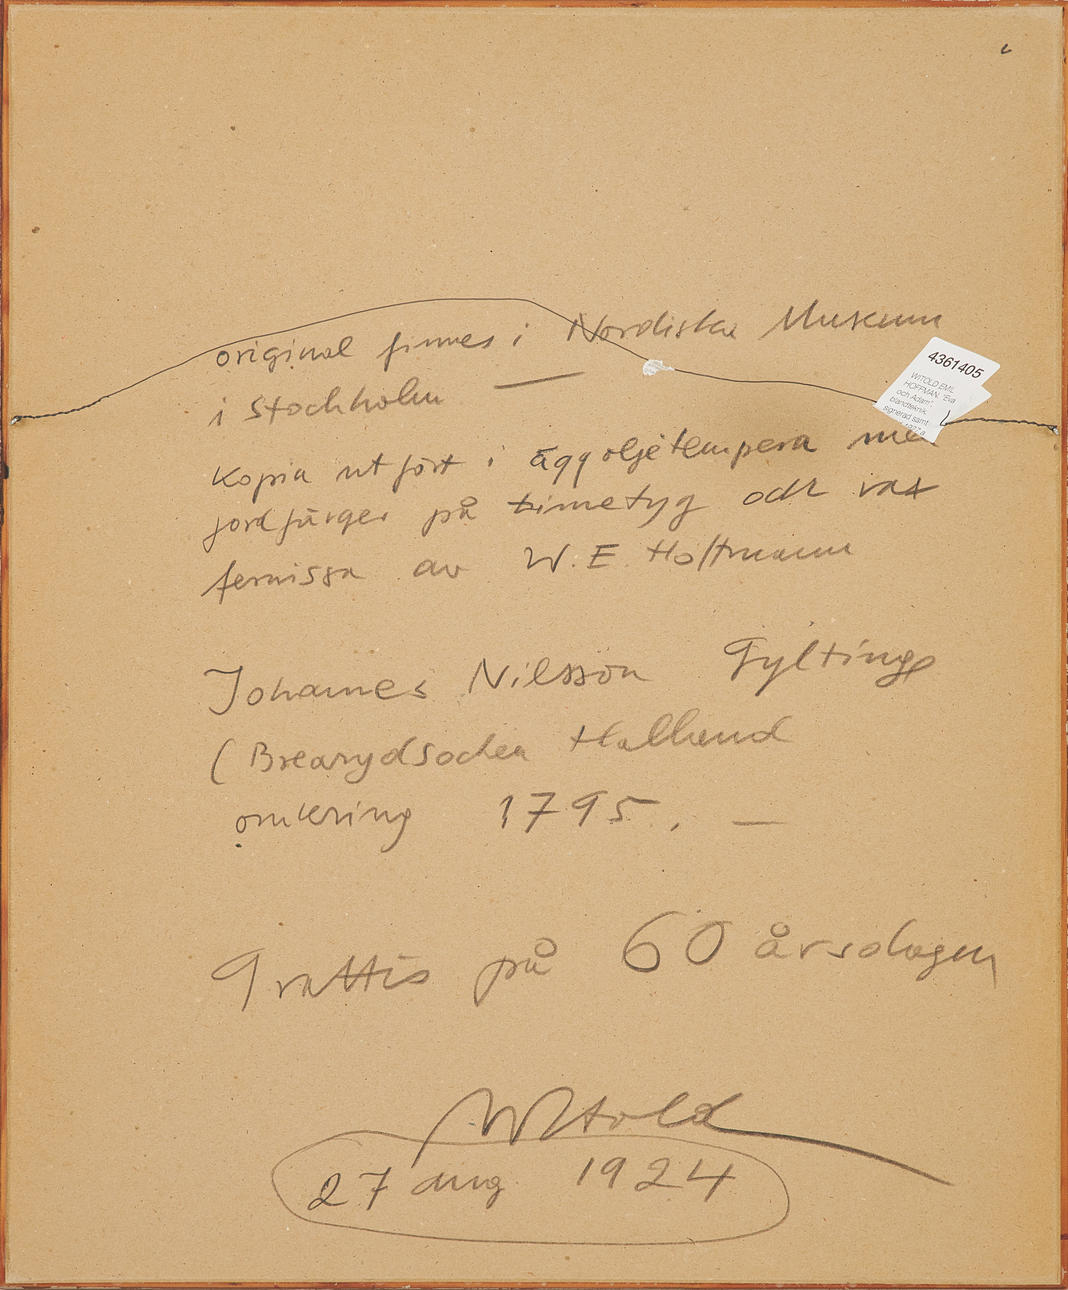 original finnes i Nordiska Museum
i Stockholm —
4361405
WITOLD EMIL
HOFFMAN. "Eva
och Adam",
blandteknik,
signerad samt
Kopia utfört i äggoljetempera med
jordfärger på linnetyg och vax
fernissa av W. E. Hoffmann
Johannes Nilsson Gyltinge
(Brearydsocken Halland
omkring 1795. —
Grattis på 60 årsdagen
Witold
27 aug 1924